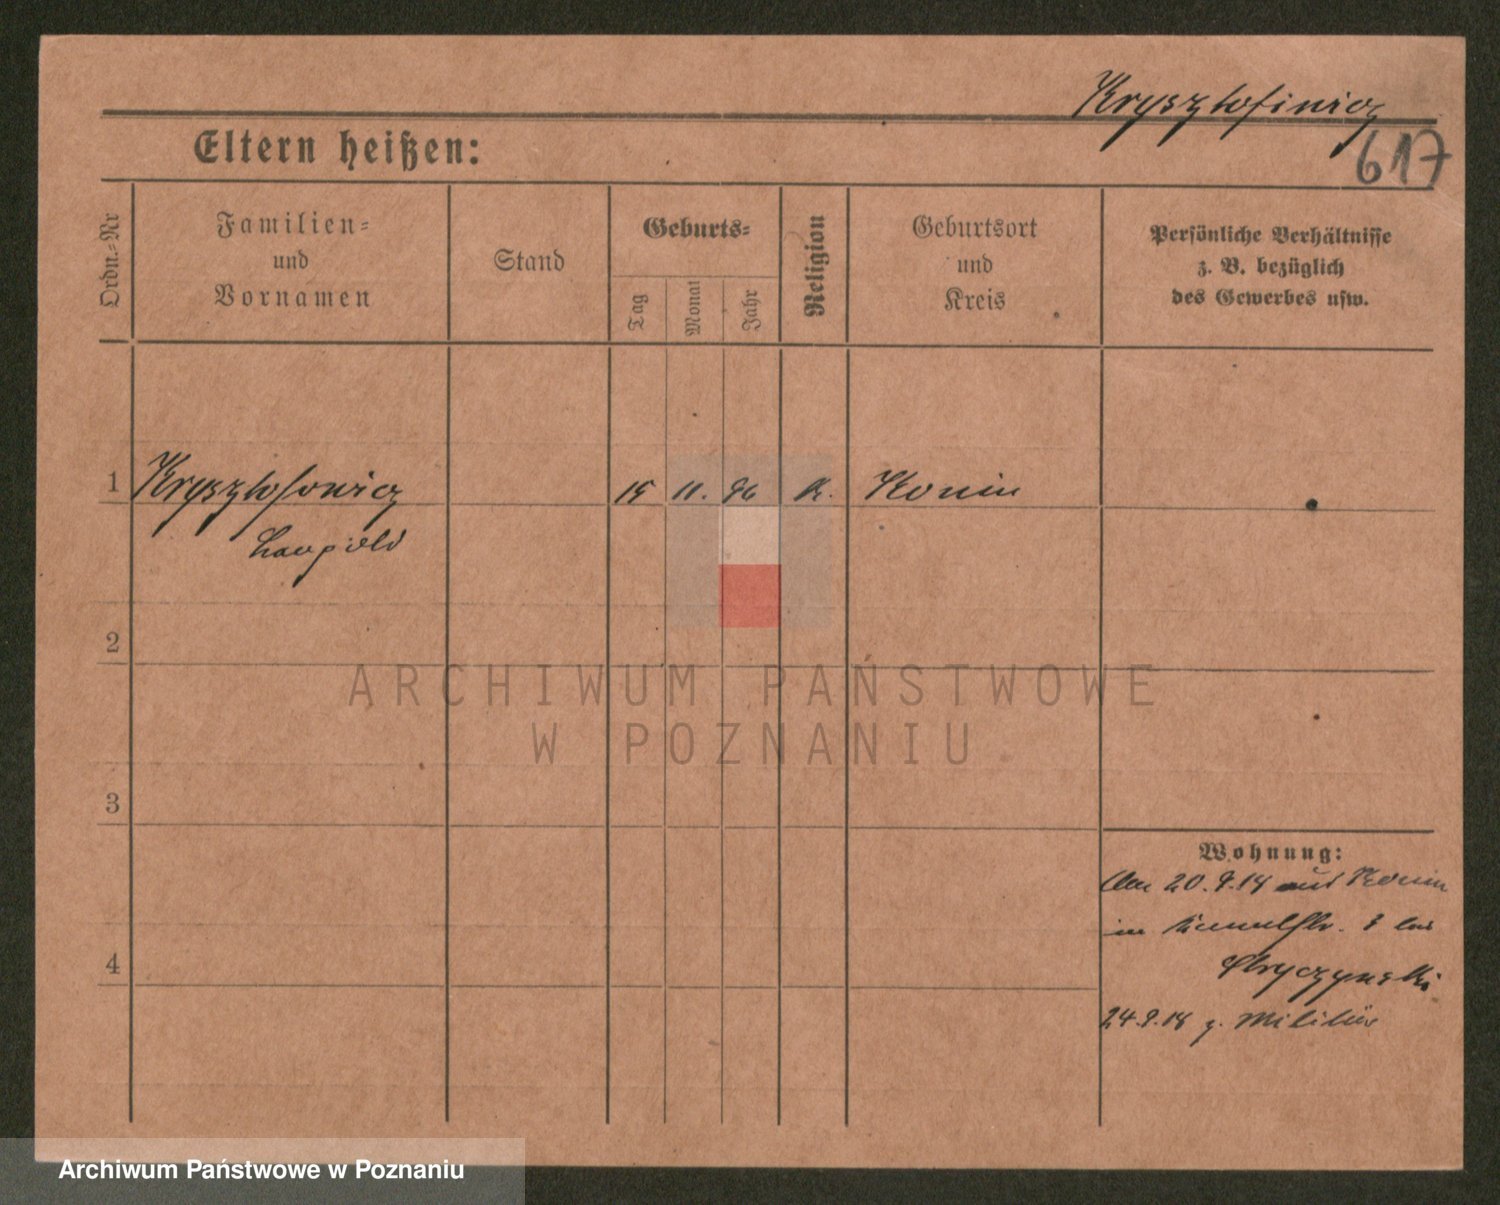 Krysztofinicz
617
Eltern heißen:
Ordn.-Nr
Familien-
und
Vornamen
Stand
Geburts-
Tag
Monat
Jahr
Religion
Geburtsort
und
Kreis
Persönliche Verhältnisse
z. B. bezüglich
des Gewerbes usw.
1 Krysztofowicz 15 11. 96 K. Konin
Leupold
2
ARCHIWUM PAŃSTWOWE
W POZNANIU
3
Wohnung:
20.9.18 aus Konin
in 3 bei
4
24.9.18 z. Militär
Archiwum Państwowe w Poznaniu